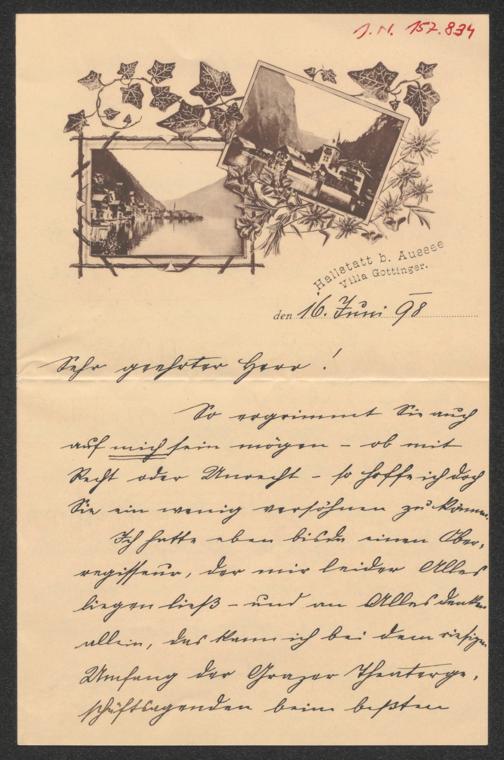 J.N. 157.834
Hallstatt b. Aussee
Villa Gottinger.
den 16. Juni 98
Sehr geehrter Herr!
So ergrimmt Sie auch
auf mich sein mögen – ob mit
Recht oder Unrecht – so hoffe ich doch
Sie ein wenig versöhnen zu können.
Ich hatte eben bisda einen Ober-
regisseur, der mir leider Alles
liegen ließ – und an Alles denken
allein, das kann ich bei dem riesigen
Umfang der Grazer Theaterge-
schäftsagenden beim beßten